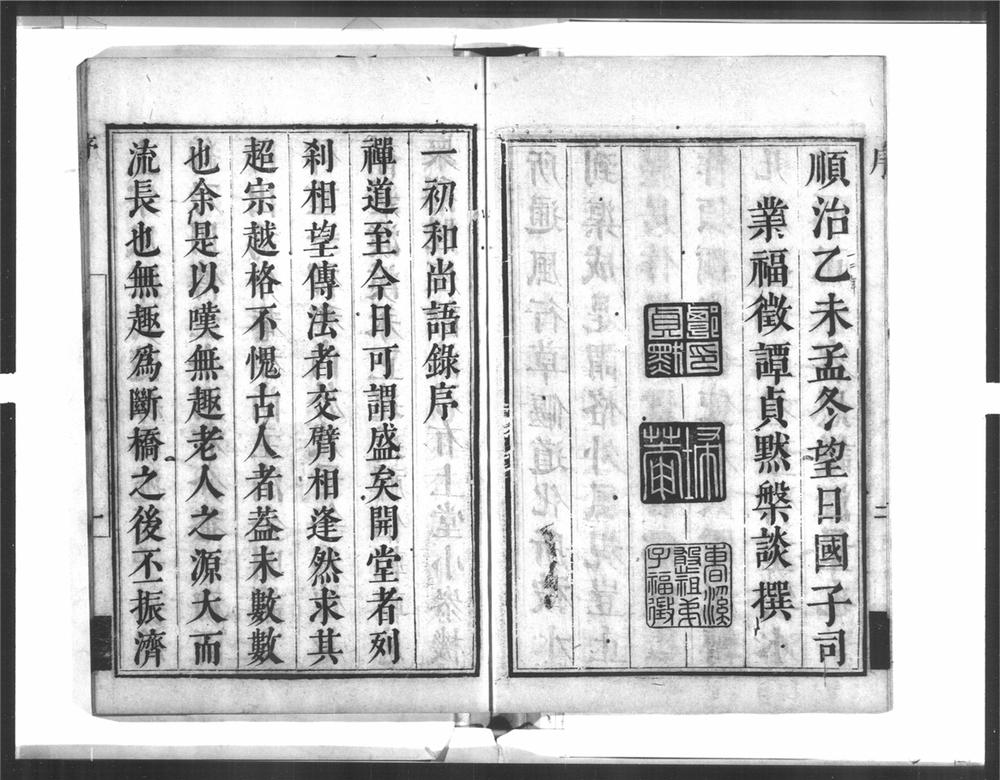 序
二
順治乙未孟冬望日國子司
業福徵譚貞黙槃談撰
一初和尚語錄序
禪道至今日可謂盛矣開堂者列
刹相望傳法者交臂相逢然求其
超宗越格不愧古人者葢未數數
也余是以嘆無趣老人之源大而
流長也無趣爲斷橋之後丕振濟
序
一